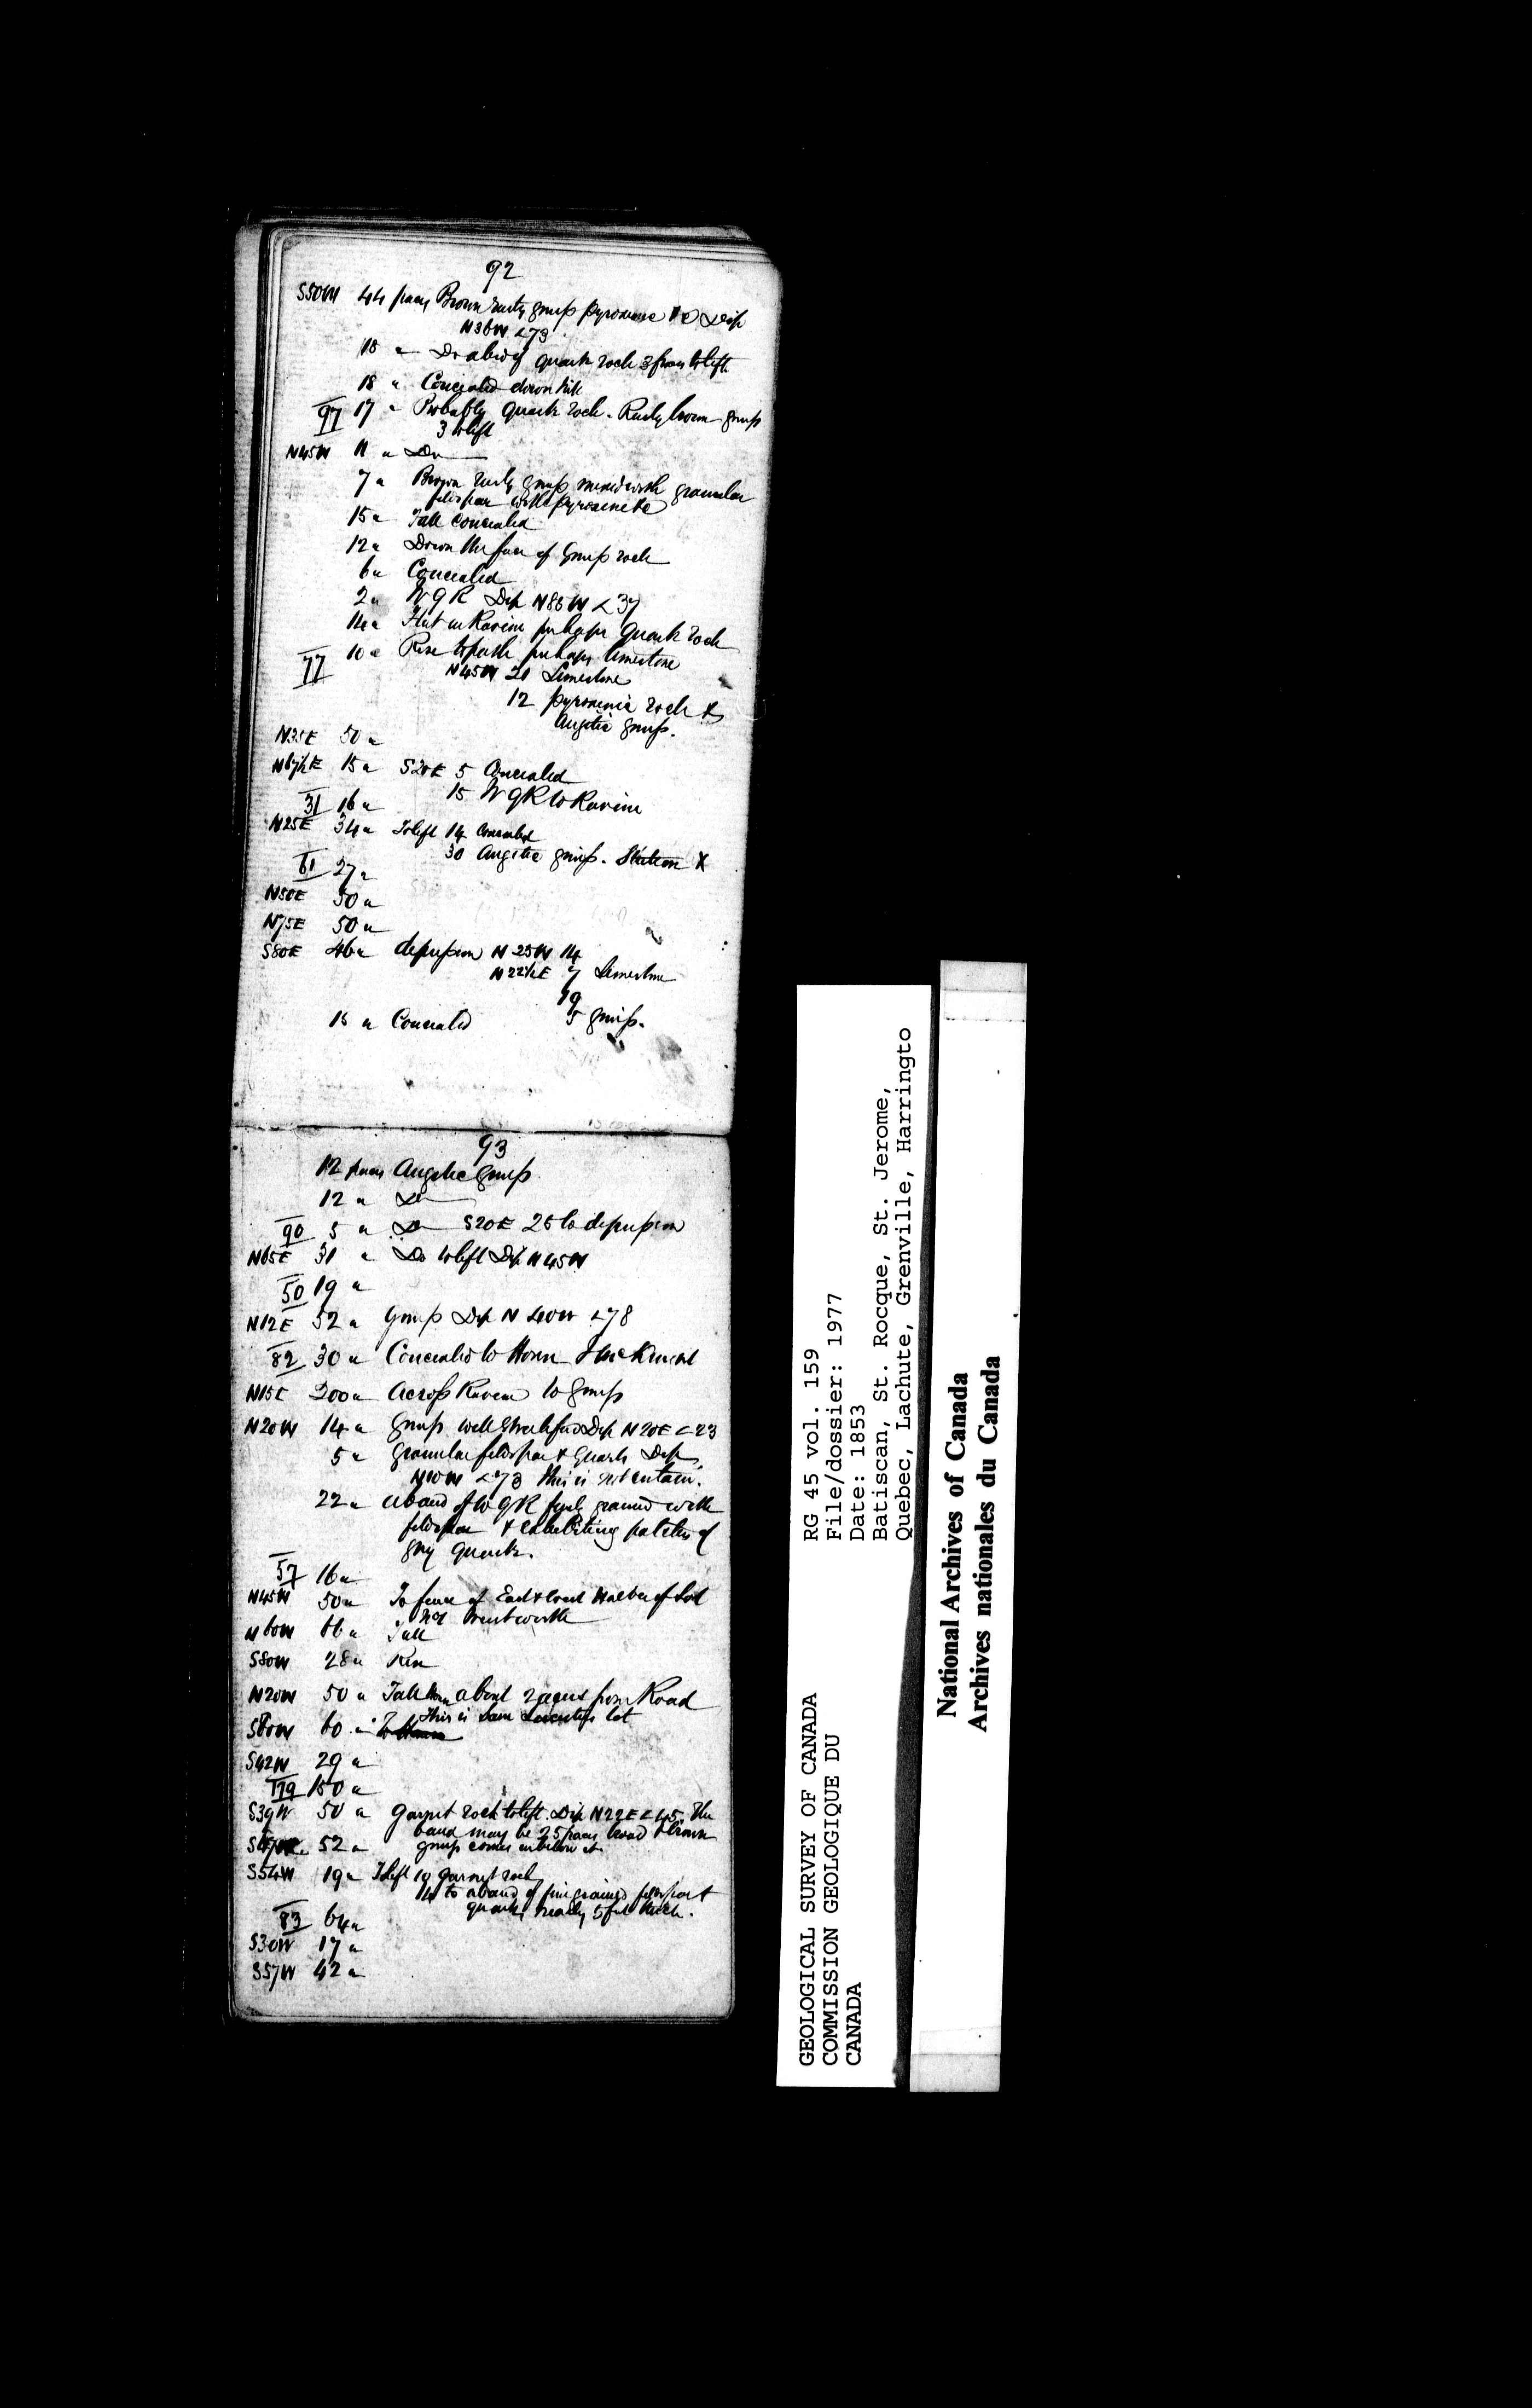 92
S50W 44 paces Brown rusty gneiss pyroxene &c Dip
N36W <73
18 " Do a bed of quartz rock 3 paces to left
18 " Concealed down hill
97 17 " Probably quartz rock. Rusty brown gneiss
3 to left
N45W 11 " Do
7 " Brown rusty gneiss mixed with granular
feldspar with pyroxene &c
15 " Fall concealed
12 " Down the face of gneiss rock
6 " Concealed
2 " W G R Dip N85W <37
14 " Flat in Ravine perhaps quartz rock
77 10 " Rise to path perhaps limestone
N45W 20 Limestone
12 pyroxenic rock &
Augitic gneiss.
N35E 50 "
N67½E 15 " S20E 5 Concealed
31 16 " 15 W G R to Ravine
N25E 34 " To left 14 Concealed
30 Augitic gneiss. Station X
61 27 "
N50E 50 "
N75E 50 "
S80E 46 " depression N25W 14
N22½E 7 Limestone
19
15 " Concealed 5 gneiss.
93
12 paces Augitic gneiss
12 " Do
90 5 " Do S20E 25 to depression
N65E 31 " Do to left Dip N45W
50 19 "
N12E 52 " Gneiss Dip N40W <78
82 30 " Concealed to House
N15E 200 " Across Ravine to gneiss
N20W 14 " Gneiss well stratified Dip N20E <23
5 " granular feldspar & quartz Dip
N10W <73 this is not certain.
22 " a band of W G R finely grained with
feldspar & exhibiting patches of
grey quartz.
57 16 "
N45W 50 " To fence of East & West halves of Lot
Wentworth
N60W 66 " Fall
S80W 28 " Rise
N20W 50 " Fall House about 2 acres from Road
This is same lot
S60W 60 " To House
S42W 29 "
179 150 "
S39W 50 " Garnet rock to left. Dip N22E <45. The
band may be 25 paces broad & brown
52 " gneiss comes in below it.
S54W 19 " To left 10 garnet rock
14 to a band of fine grained feldspar &
quartz nearly 5 feet thick.
83 64 "
S30W 17 "
S57W 42 "
GEOLOGICAL SURVEY OF CANADA
COMMISSION GEOLOGIQUE DU
CANADA
RG 45 vol. 159
File/dossier: 1977
Date: 1853
Batiscan, St. Rocque, St. Jerome,
Quebec, Lachute, Grenville, Harringto
National Archives of Canada
Archives nationales du Canada